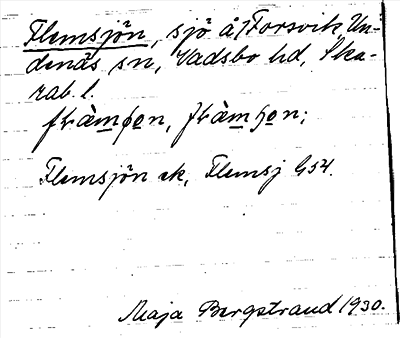 Flemsjön, sjö å Forsvik Un-
denäs sn, Vadsbo hd, Ska-
rab. l.
Flemsjön ek, Flemsj G54.
Maja Bergstrand 1930.